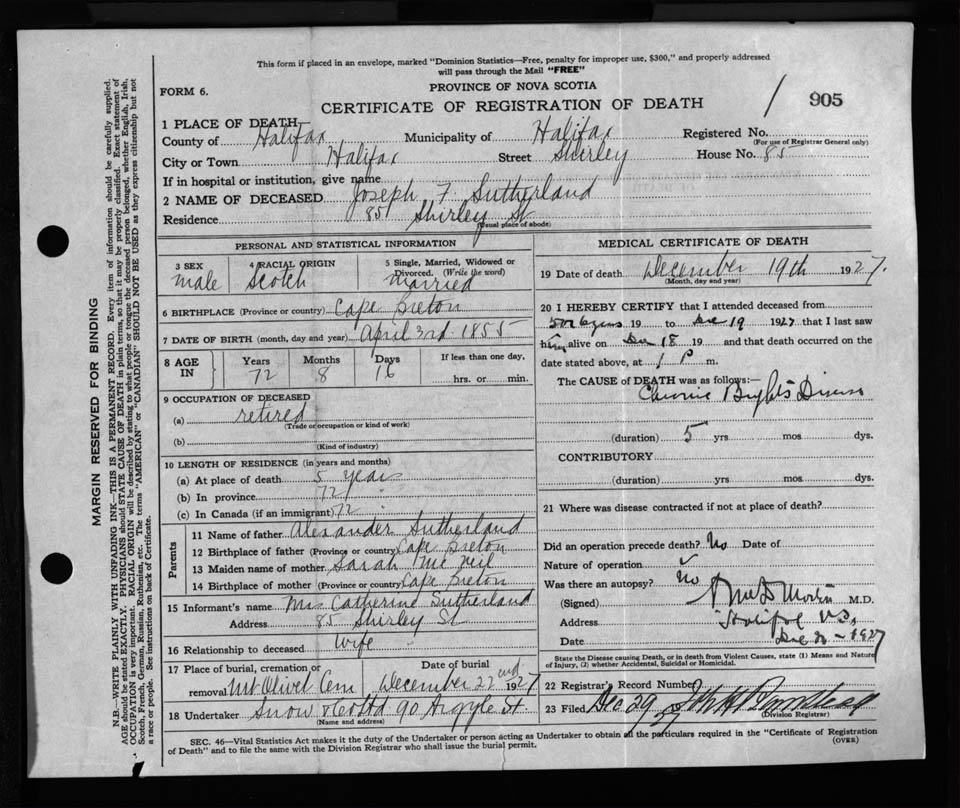 This form if placed in an envelope, marked "Dominion Statistics—Free, penalty for improper use, $300," and properly addressed
will pass through the Mail "FREE"
FORM 6.
PROVINCE OF NOVA SCOTIA
CERTIFICATE OF REGISTRATION OF DEATH
1 905
1 PLACE OF DEATH
County of Halifax Municipality of Halifax Registered No.
(For use of Registrar General only)
City or Town Halifax Street Shirley House No. 85
If in hospital or institution, give name
2 NAME OF DECEASED Joseph F. Sutherland
Residence 85 Shirley St
(Usual place of abode)
PERSONAL AND STATISTICAL INFORMATION
3 SEX 4 RACIAL ORIGIN 5 Single, Married, Widowed or
Divorced. (Write the word)
male Scotch married
6 BIRTHPLACE (Province or country) Cape Breton
7 DATE OF BIRTH (month, day and year) April 3rd 1855
8 AGE IN Years Months Days If less than one day,
72 8 16 hrs. or min.
9 OCCUPATION OF DECEASED
(a) retired
(Trade or occupation or kind of work)
(b)
(Kind of industry)
10 LENGTH OF RESIDENCE (in years and months)
(a) At place of death 5 years
(b) In province 72
(c) In Canada (if an immigrant) 72
Parents
11 Name of father Alexander Sutherland
12 Birthplace of father (Province or country) Cape Breton
13 Maiden name of mother Sarah Mc Neil
14 Birthplace of mother (Province or country) Cape Breton
15 Informant's name Mrs Catherine Sutherland
Address 85 Shirley St
16 Relationship to deceased wife
17 Place of burial, cremation or Date of burial
removal Mt Olivet Cem December 22nd 1927
18 Undertaker Snow & Co Ltd 90 Argyle St
(Name and address)
MEDICAL CERTIFICATE OF DEATH
19 Date of death December 19th 1927.
(Month, day and year)
20 I HEREBY CERTIFY that I attended deceased from
5 or 6 yrs 19 to Dec 19 1927 that I last saw
him alive on Dec 18 19 and that death occurred on the
date stated above, at 1 P m.
The CAUSE of DEATH was as follows:—
Chronic Bright's Disease
(duration) 5 yrs mos dys.
CONTRIBUTORY
(duration) yrs mos dys.
21 Where was disease contracted if not at place of death?
Did an operation precede death? No Date of
Nature of operation
Was there an autopsy? No
(Signed) M.D.
Address Halifax N.S.
Date Dec 20 - 1927
State the Disease causing Death, or in death from Violent Causes, state (1) Means and Nature
of Injury, (2) whether Accidental, Suicidal or Homicidal.
22 Registrar's Record Number
23 Filed Dec 29 / 27
(Division Registrar)
SEC. 46—Vital Statistics Act makes it the duty of the Undertaker or person acting as Undertaker to obtain all the particulars required in the "Certificate of Registration
of Death" and to file the same with the Division Registrar who shall issue the burial permit.
(OVER)
MARGIN RESERVED FOR BINDING
N.B.—WRITE PLAINLY WITH UNFADING INK—THIS IS A PERMANENT RECORD. Every item of information should be carefully supplied.
AGE should be stated EXACTLY. PHYSICIANS should STATE CAUSE OF DEATH in plain terms, so that it may be properly classified. Exact statement of
OCCUPATION is very important. RACIAL ORIGIN will be described by stating to what people tongue the deceased person belonged, whether English, Irish,
Scotch, French, German, Russian, Ruthenian, etc. The terms "AMERICAN" or "CANADIAN" SHOULD NOT BE USED as they express citizenship but not
a race or people. See instructions on back of Certificate.